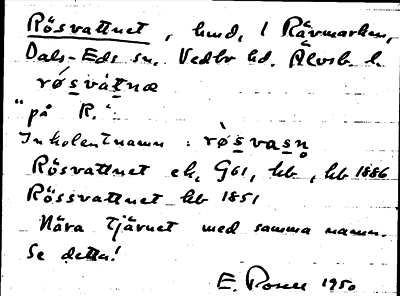 Rösvattnet, hmd, i Rävmarken,
Dals-Eds sn. Vedbo hd. Älvsb. l.
røsvàtnæ
"på R."
Inkolentnamn: rø̀svasn̥
Rösvattnet ek, G61, hb, kb 1886
Rössvattnet kb 1851
Nära Tjärnet med samma namn.
Se detta!
E. Rosen 1950